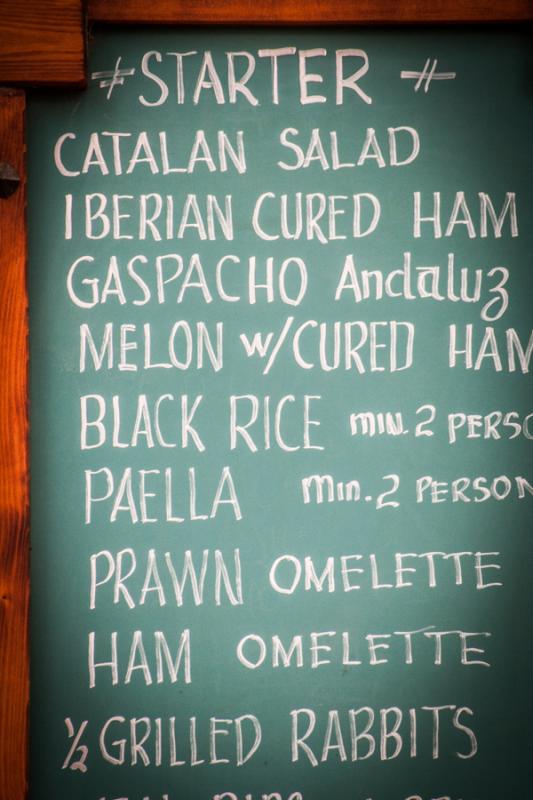 STARTER
CATALAN SALAD
IBERIAN CURED HAM
GASPACHO Andaluz
MELON w/CURED HAM
BLACK RICE min. 2 PERSO
PAELLA Min. 2 PERSON
PRAWN OMELETTE
HAM OMELETTE
½ GRILLED RABBITS